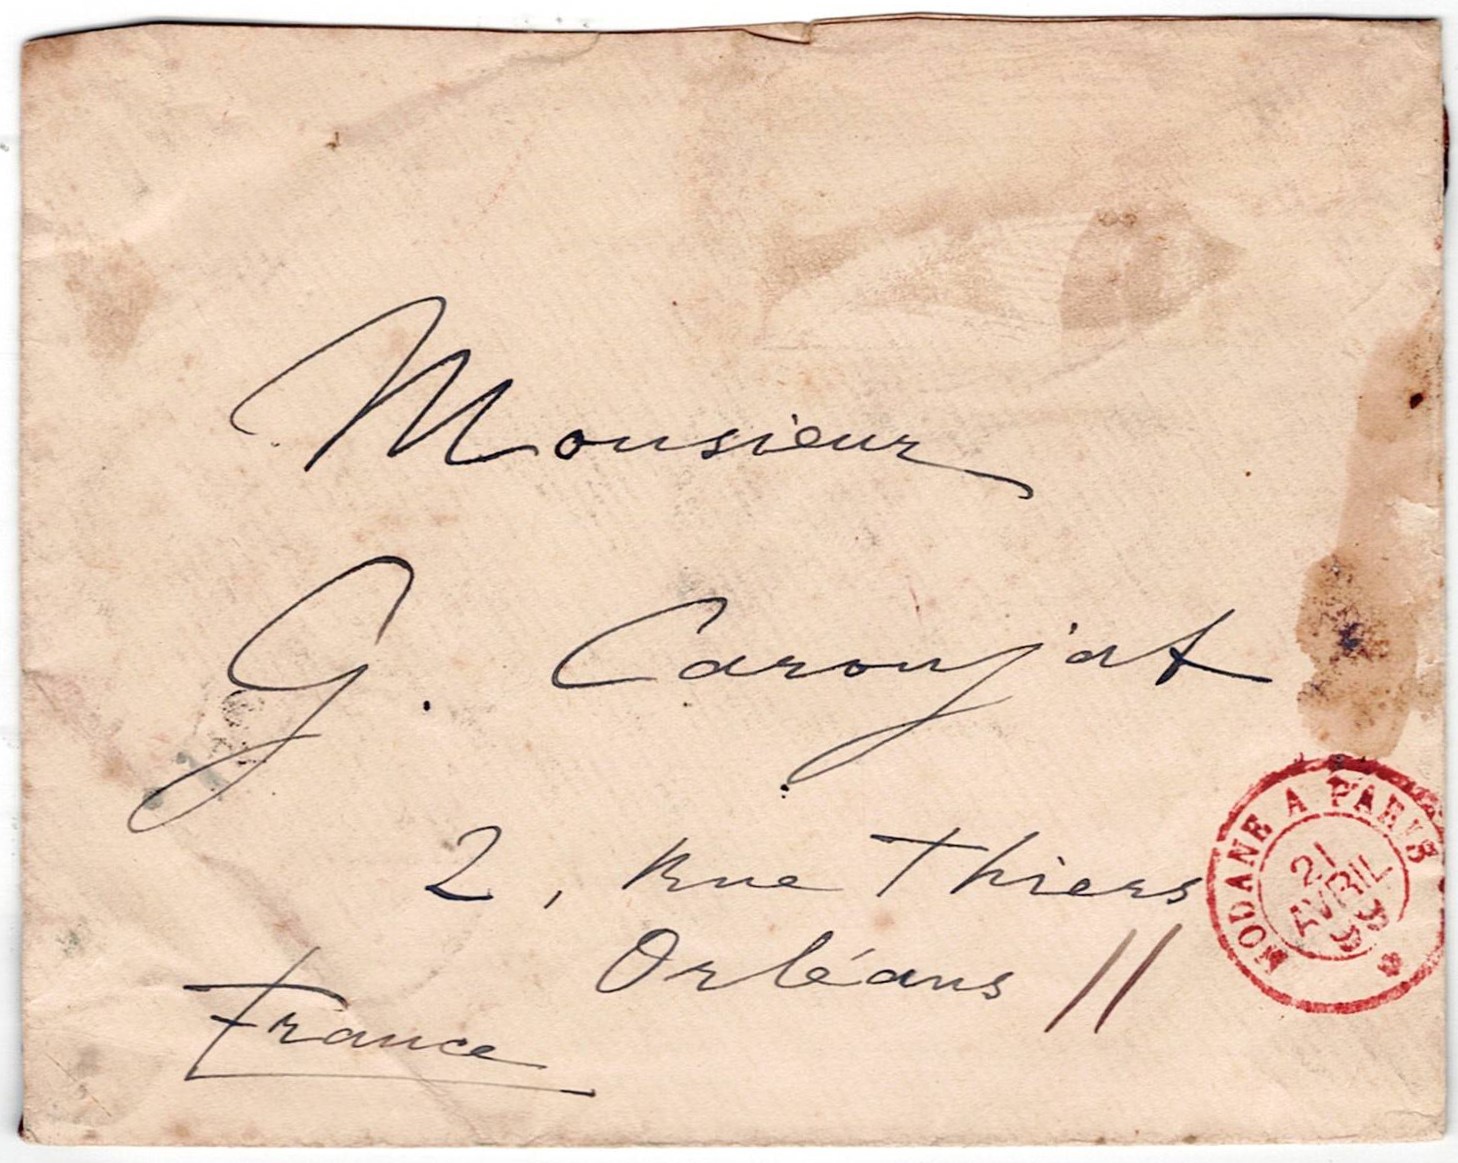 Monsieur
G. Caroujat
2, Rue Thiers
Orléans //
France
MODANE A PARIS
21
AVRIL
99